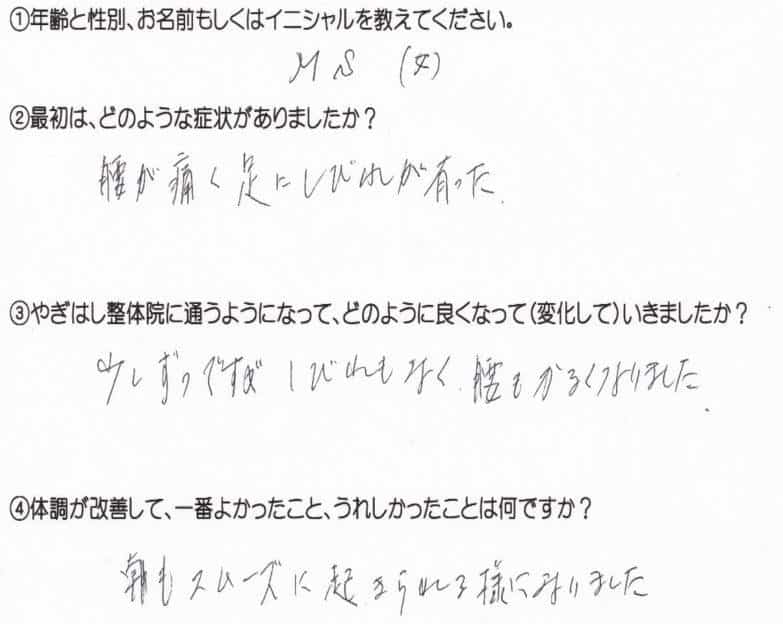 ①年齢と性別、お名前もしくはイニシャルを教えてください。
M S (女)
②最初は、どのような症状がありましたか？
腰が痛く足にしびれが有った.
③やぎはし整体院に通うようになって、どのように良くなって（変化して）いきましたか？
少しずつですが しびれもなく、腰もかるくなりました.
④体調が改善して、一番よかったこと、うれしかったことは何ですか？
朝もスムーズに起きられる様になりました